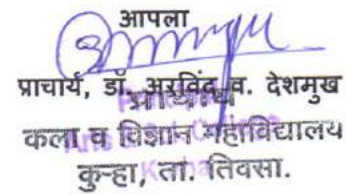 आपला
प्राचार्य, डॉ. अरविंद व. देशमुख
प्राचार्य
कला व विज्ञान महाविद्यालय
कुऱ्हा, ता. तिवसा.